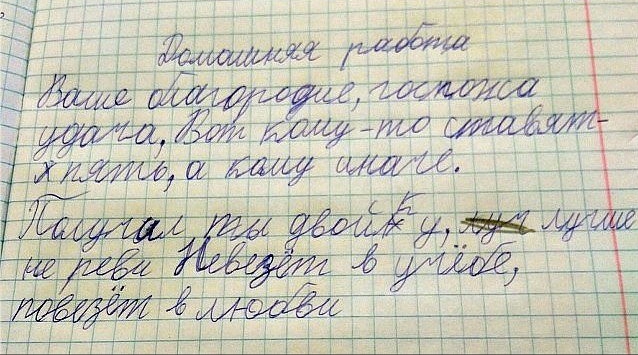 Домашняя работа
Ваше благородие, госпожа
удача. Вот кому-то ставят-
х пять, а кому иначе.
Получил ты двойку, луч лучше
не реви Невезёт в учёбе,
повезёт в любви